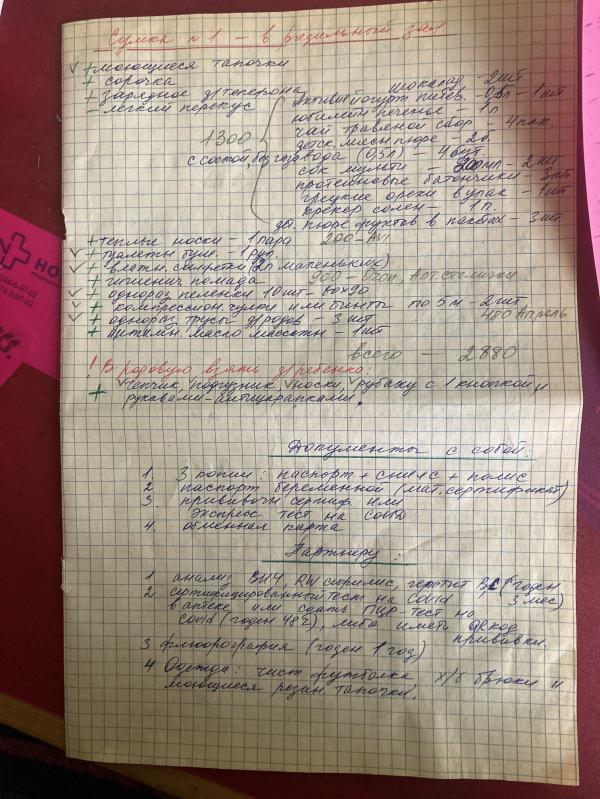 Сумка №1 – в родильный зал
✓ + моющиеся тапочки
+ сорочка
+ зарядное д/телефона
– лёгкий перекус
шоколад – 2 шт
йогурт питьев. – 0,5л – 1 шт
юбилейн. печенье – 1 п
чай травяной сбор – 4 пак.
1300
детск. мясн. пюре – 2 б.
с соской, без газа вода (0,5л) – 4 бут.
сок мульти – 200мл – 2 шт
протеиновые батончики – 3 шт
грецкие орехи в упак – 1 шт
крекер солен – 1 п.
пюре фруктов в пакетах – 3 шт
+ тёплые носки – 1 пара 200 –
✓ + туалетн. бум. 1 рул.
✓ + влажн. салфетки (2п маленьких)
+ гигиенич помада 900 – Озон,
✓ + однораз. пеленки 10 шт –
✓ + компрессион. чулки или бинты по 5 м – 2 шт
✓ + однораз. трусы д/родов – 3 шт 480 Апрель
+ масло массажн – 1 шт
всего – 2880
! В родовую взять д/ребенка:
+ ✓ чепчик, ✓ подгузник, ✓ носки, ✓ рубаху с 1 кнопкой и
рукавами-антицарапками.
Документы с собой:
1. 3 копии: паспорт + снилс + полис
2 паспорт беременной (мат. сертификат)
3. прививочн сертиф. или
Экспресс тест на Covid
4. обменная карта
Партнеру:
1 анализ ВИЧ, RW сифилис, гепатит В,С (годен
3 мес)
2 сертифицированный тест на Covid
в аптеке или сдать ПЦР-тест на
Covid (годен 48ч), либо иметь QR код
прививки.
3 флюорография (годен 1 год)
4 Одежда: чист футболка х/б брюки и
моющиеся резин. тапочки.
НО